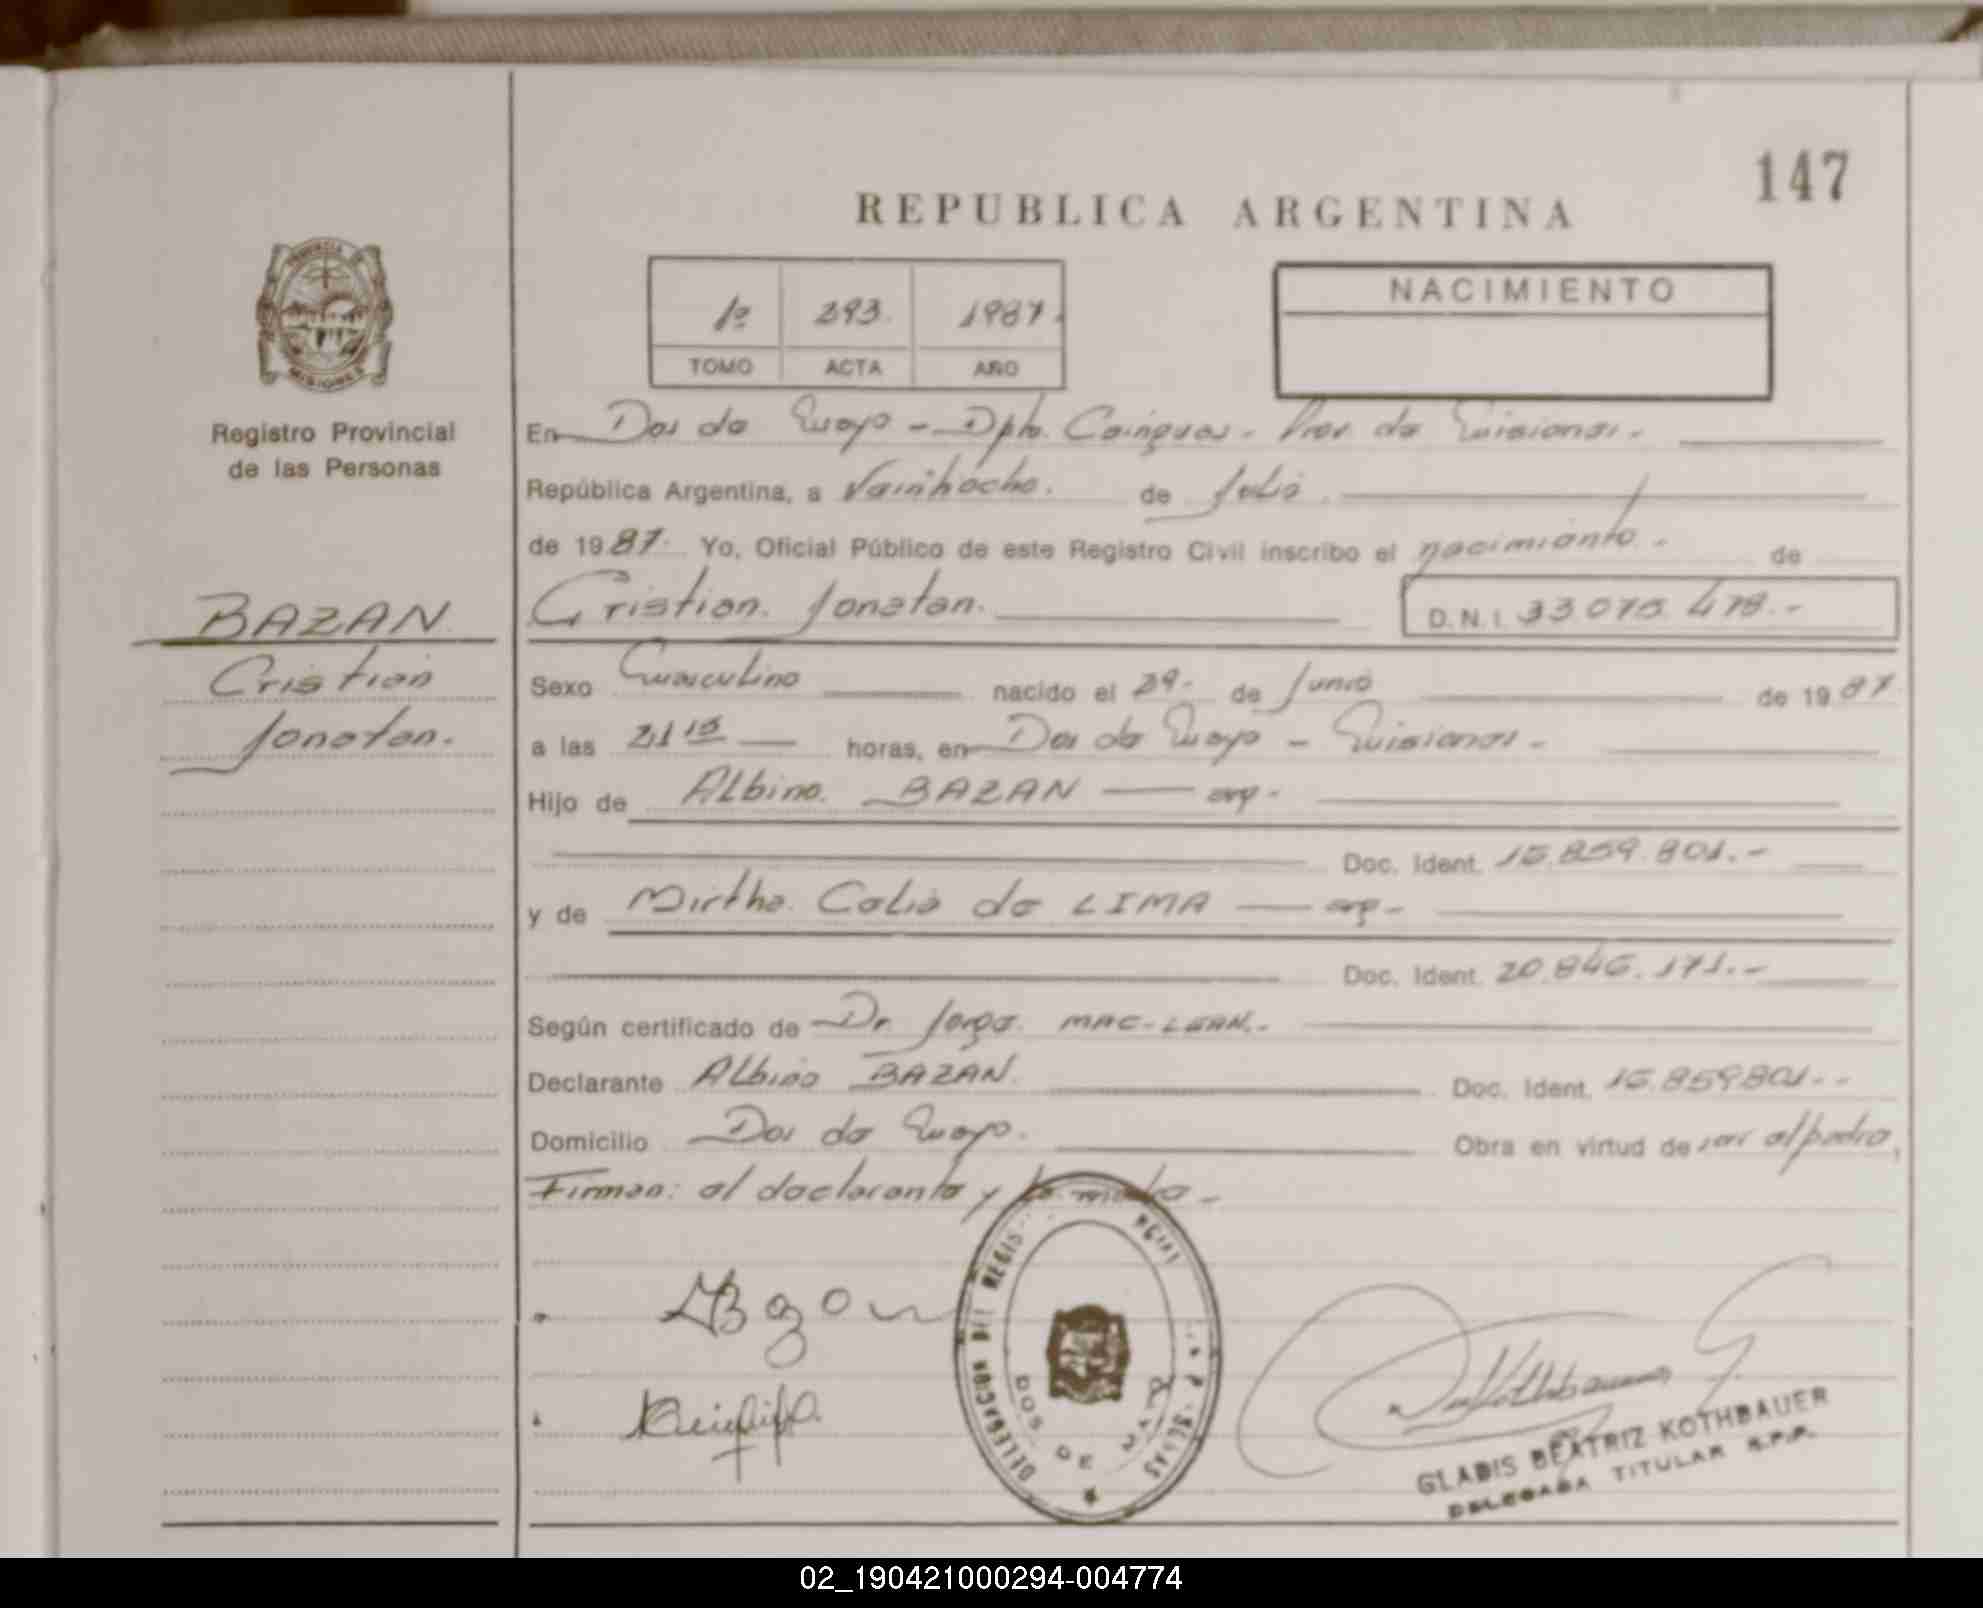 147
REPUBLICA ARGENTINA
PROVINCIA DE
MISIONES
Registro Provincial
de las Personas
1º 293. 1987.
TOMO ACTA AÑO
NACIMIENTO
En Dos de Mayo - Dpto. Cainguas - Prov. de Misiones -
República Argentina, a Veinteocho. de Julio
de 1987. Yo, Oficial Público de este Registro Civil inscribo el nacimiento. - de
BAZAN
Cristian
Jonatan.
Cristian. Jonatan. D.N.I. 33.075.478.-
Sexo Masculino nacido el 29. de Junio de 1987
a las 21 15 horas, en Dos de Mayo - Misiones -
Hijo de Albino. BAZAN arg-
Doc. Ident. 16.859.801.-
y de Mirtha. Celia de LIMA arg-
Doc. Ident. 20.846.171.-
Según certificado de Dr. Jorge. MAC-LEAN.-
Declarante Albino BAZAN. Doc. Ident. 16.859801--
Domicilio Dos de Mayo. Obra en virtud de ser el padre,
Firman: el declarante y la madre -
DELEGACION DEL REGIS
DOS DE MAYO
GLADIS BEATRIZ KOTHBAUER
DELEGADA TITULAR R.P.P.
02_190421000294-004774